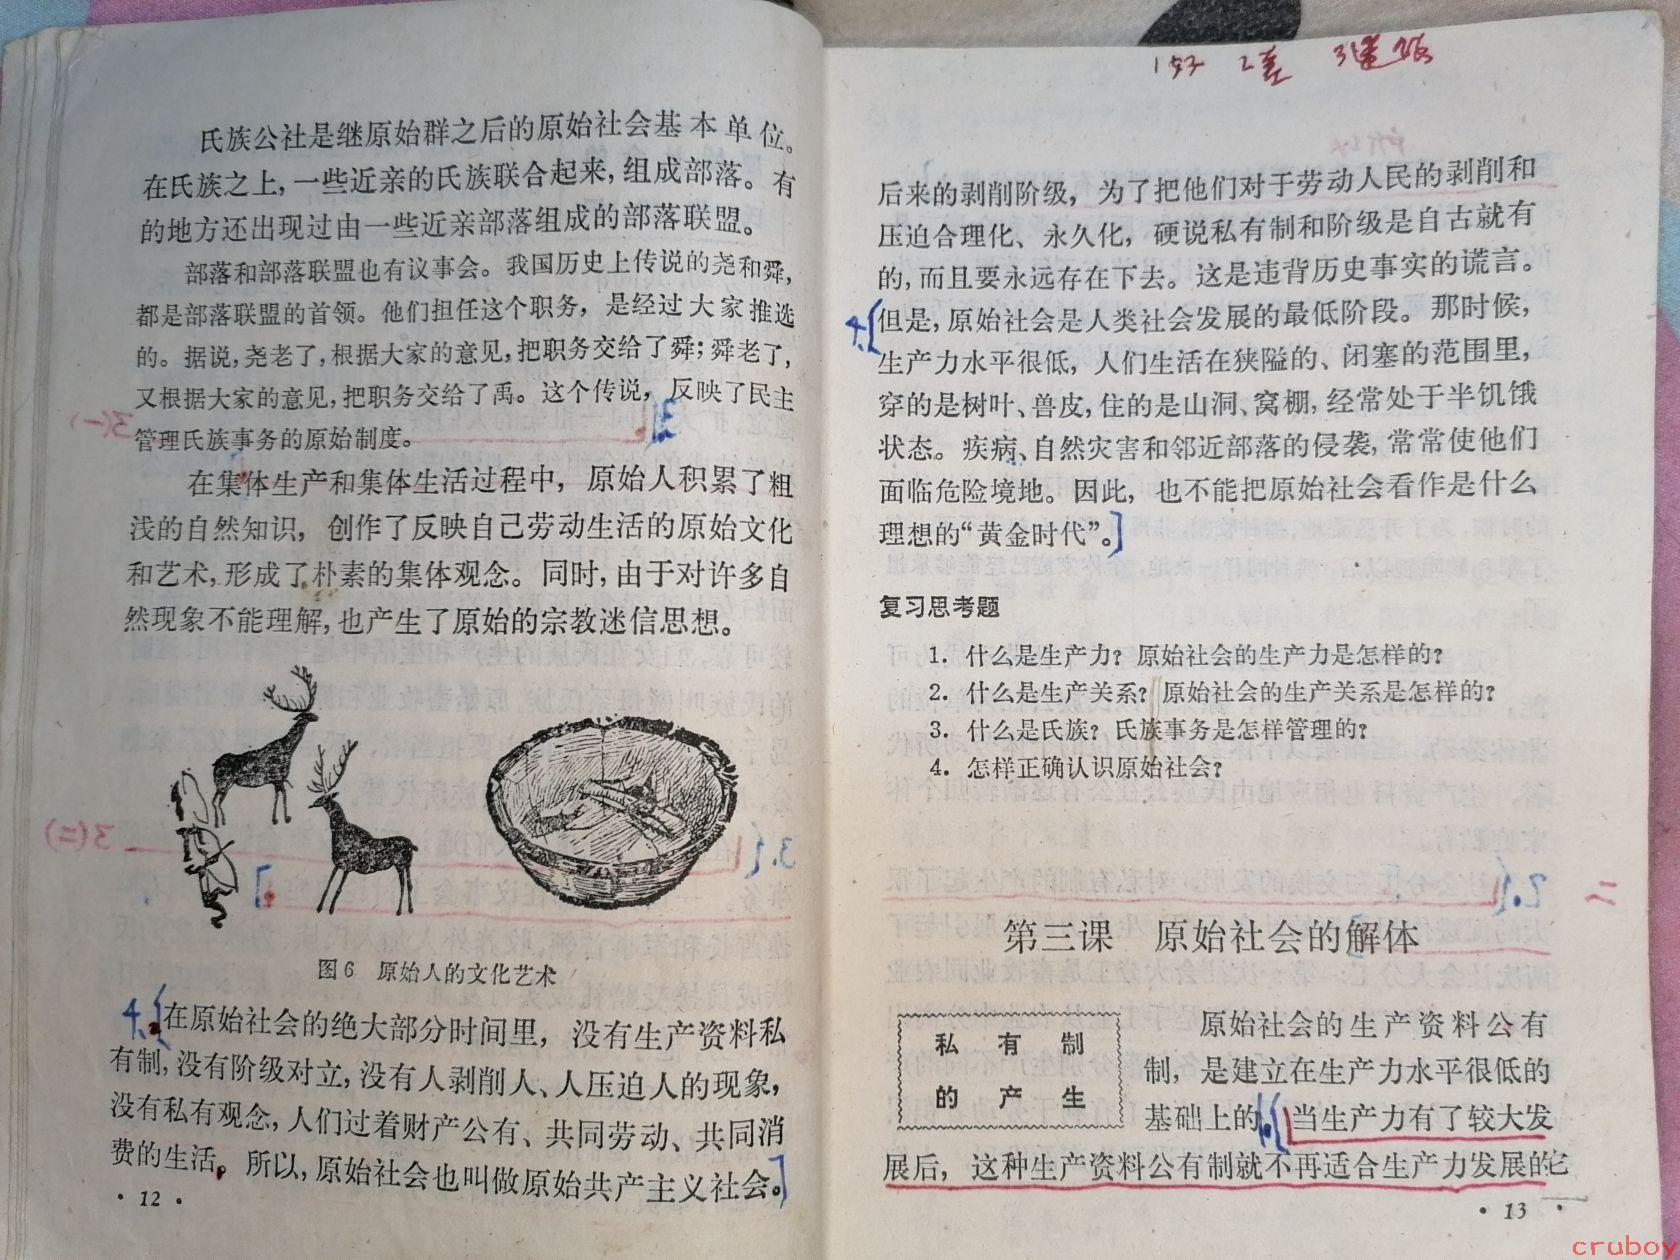 氏族公社是继原始群之后的原始社会基本单位。
在氏族之上，一些近亲的氏族联合起来，组成部落。有
的地方还出现过由一些近亲部落组成的部落联盟。
部落和部落联盟也有议事会。我国历史上传说的尧和舜，
都是部落联盟的首领。他们担任这个职务，是经过大家推选
的。据说，尧老了，根据大家的意见，把职务交给了舜；舜老了，
又根据大家的意见，把职务交给了禹。这个传说，反映了民主
管理氏族事务的原始制度。
在集体生产和集体生活过程中，原始人积累了粗
浅的自然知识，创作了反映自己劳动生活的原始文化
和艺术，形成了朴素的集体观念。同时，由于对许多自
然现象不能理解，也产生了原始的宗教迷信思想。
图6 原始人的文化艺术
4.
在原始社会的绝大部分时间里，没有生产资料私
有制，没有阶级对立，没有人剥削人、人压迫人的现象，
没有私有观念，人们过着财产公有、共同劳动、共同消
费的生活。所以，原始社会也叫做原始共产主义社会。
·12·
1好 2差
后来的剥削阶级，为了把他们对于劳动人民的剥削和
压迫合理化、永久化，硬说私有制和阶级是自古就有
的，而且要永远存在下去。这是违背历史事实的谎言。
4.
但是，原始社会是人类社会发展的最低阶段。那时候，
生产力水平很低，人们生活在狭隘的、闭塞的范围里，
穿的是树叶、兽皮，住的是山洞、窝棚，经常处于半饥饿
状态。疾病、自然灾害和邻近部落的侵袭，常常使他们
面临危险境地。因此，也不能把原始社会看作是什么
理想的“黄金时代”。
复习思考题
1. 什么是生产力？原始社会的生产力是怎样的？
2. 什么是生产关系？原始社会的生产关系是怎样的？
3. 什么是氏族？氏族事务是怎样管理的？
4. 怎样正确认识原始社会？
第三课 原始社会的解体
私有制
的产生
原始社会的生产资料公有
制，是建立在生产力水平很低的
基础上的。当生产力有了较大发
展后，这种生产资料公有制就不再适合生产力发展的它
·13·
cruboy